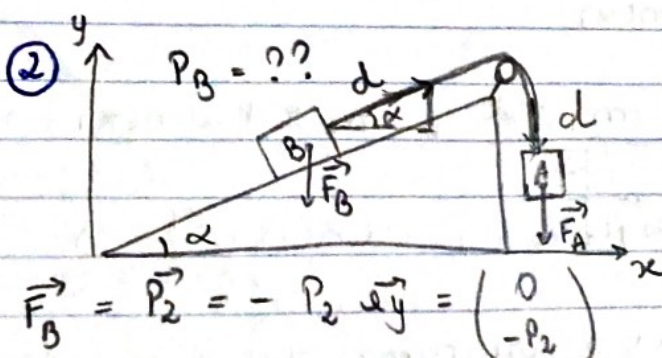 y
② P_B = ??
d
α
d
B
F_B
A
F_A
α
x
F_B = P_2 = - P_2 e_y = ( 0
-P_2 )